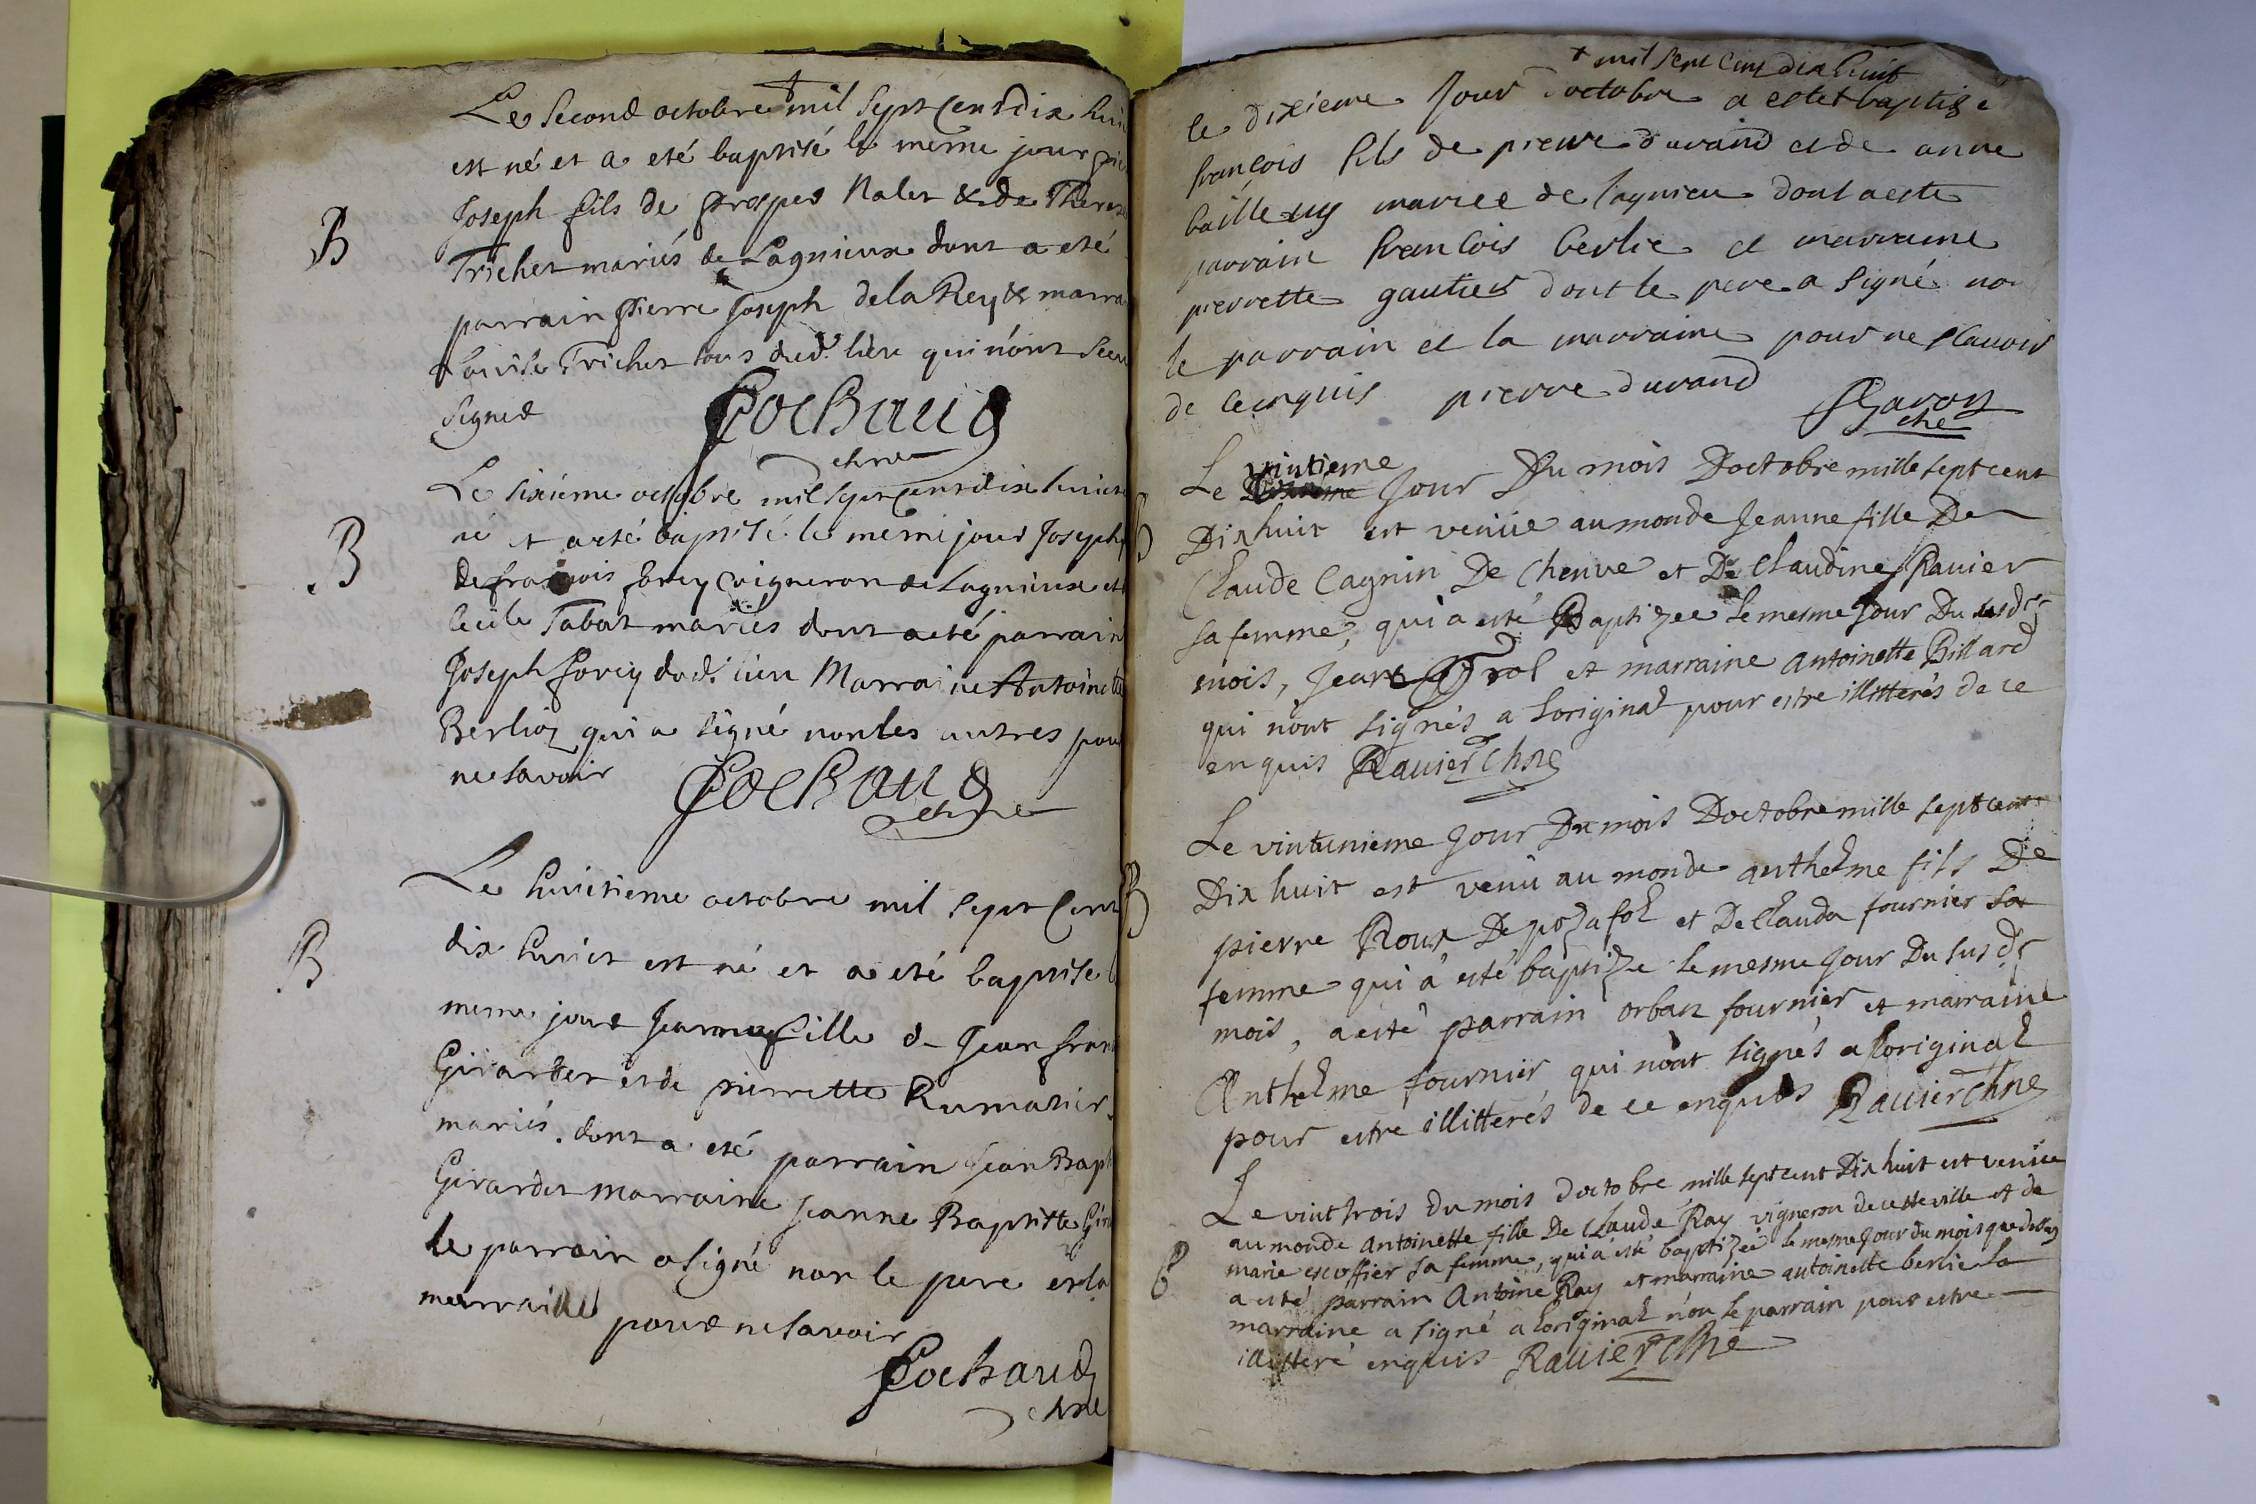 Le Second octobre mil Sept Cent dix hui
est né et a eté baptisé le meme jour
Joseph fils de prosper Nalet & de Therese
Trichet mariés de Lagnieux dont a eté
parrain pierre Joseph dela Rey & marra
Loüise Trichet tous dud. lieu qui n'ont Sceu
Signer
Cochaud
chne
B
Le sixieme octobre mil Sept Cent dix huict
né et a eté baptisé le meme jour Joseph
de francois forey vigneron de Lagnieux et
Cecile Tabat mariés dont a eté parrain
Joseph forey dud. lieu Marraine Antoinette
Berlioz qui a signé non les autres pour
ne savoir
Cochaud
chne
B
Le huictieme octobre mil Sept Cent
dix huict est né et a eté baptisé l
meme jour Jeanne fille de Jean fran
Girardet et de pierrette Rumasier
mariés. dont a eté parrain Jean Bapt
Girardet marraine Jeanne Baptiste Gir
le parrain a signé non le pere et la
marraine pour ne savoir
Cochaud
chne
B
+ mil sept cent dix huit
le dixieme Jour d'octobre a estet baptizé
francois fils de pierre durand et de anne
bailley mariee de lagnieu dont a este
parrain francois berlie et marraine
pierrette gautier dont le pere a signé non
le parrain et la marraine pour ne scavoir
de ce enquis pierre durand
chne
Le vintieme Jour Du mois Doctobre mille sept cent
Dix huit est venüe au monde Jeanne fille De
Claude Cagnin De Chenve et De Claudine Ravier
sa femme, qui a esté Baptizee le mesme Jour Du susd.
mois, Jean et marraine Antoinette Billard
qui n'ont signés a loriginal pour estre illitterés de ce
enquis Ravier Chne
B
Le vintunieme Jour Du mois Doctobre mille sept cent
Dix huit est venu au monde anthelme fils De
pierre Roux De pozafol et De Clauda fournier sa
femme qui a esté baptize le mesme Jour Du susd.
mois, a esté parrain orban fournier et marraine
Anthelme fournier, qui n'ont signés a loriginal
pour estre illitterés de ce enquis Ravier Chne
B
Le vint trois du mois doctobre mille sept cent Dix huit est venüe
au monde Antoinette fille De Claude Ray vigneron de cette ville et de
marie escoffier sa femme, qui a esté baptizée le mesme Jour du mois que dessus
a esté parrain Antoine Ray et marraine antoinette berlie la
marraine a signé a loriginal non le parrain pour estre
illitteré enquis Ravier Chne
B